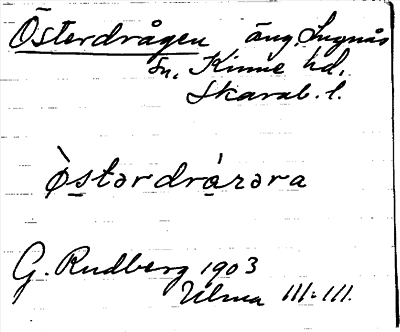 Österdrågen äng, Lugnås
sn, Kinne hd,
Skarab. l.
ø̀stərdrárəra
G. Rudberg 1903
Ulma 111:111.